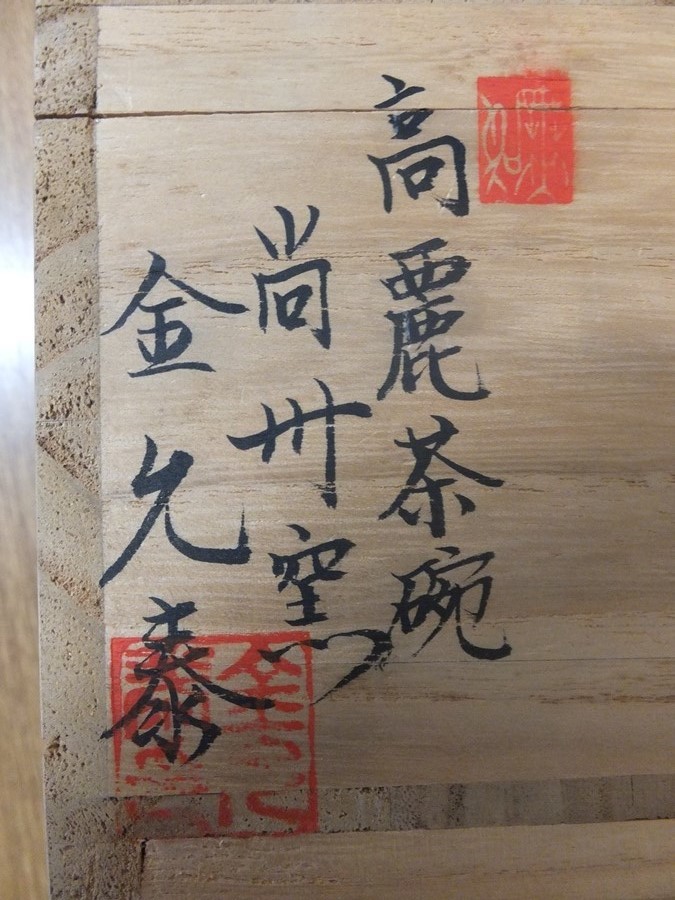 高麗茶碗
尚州窯
金允泰